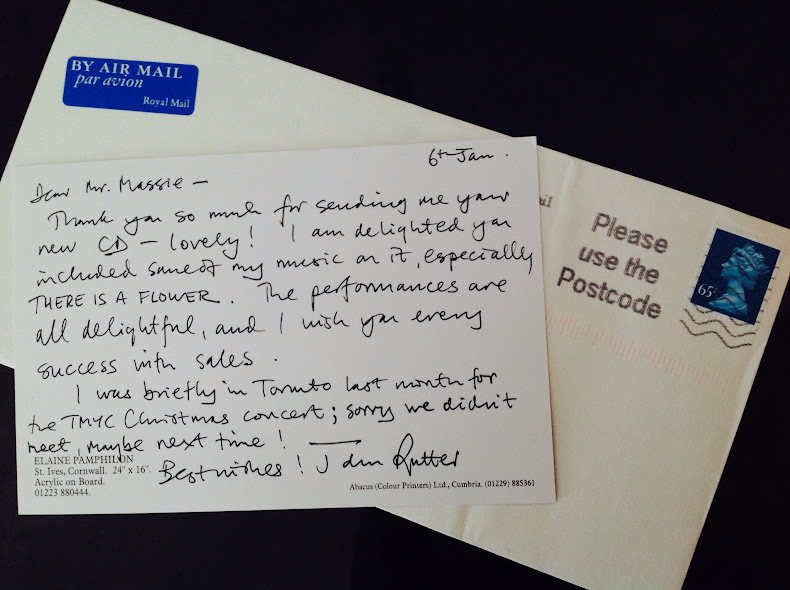 BY AIR MAIL
par avion
Royal Mail
6th Jan.
Dear Mr. Massie –
Thank you so much for sending me your
new CD – lovely! I am delighted you
included some of my music on it, especially
THERE IS A FLOWER. The performances are
all delightful, and I wish you every
success with sales.
I was briefly in Toronto last month for
the TMYC Christmas concert; sorry we didn't
meet, maybe next time!
Best wishes! John Rutter
ELAINE PAMPHILON
St. Ives, Cornwall. 24" x 16".
Acrylic on Board.
01223 880444.
Abacus (Colour Printers) Ltd., Cumbria. (01229) 885361
Please
use the
Postcode
65P